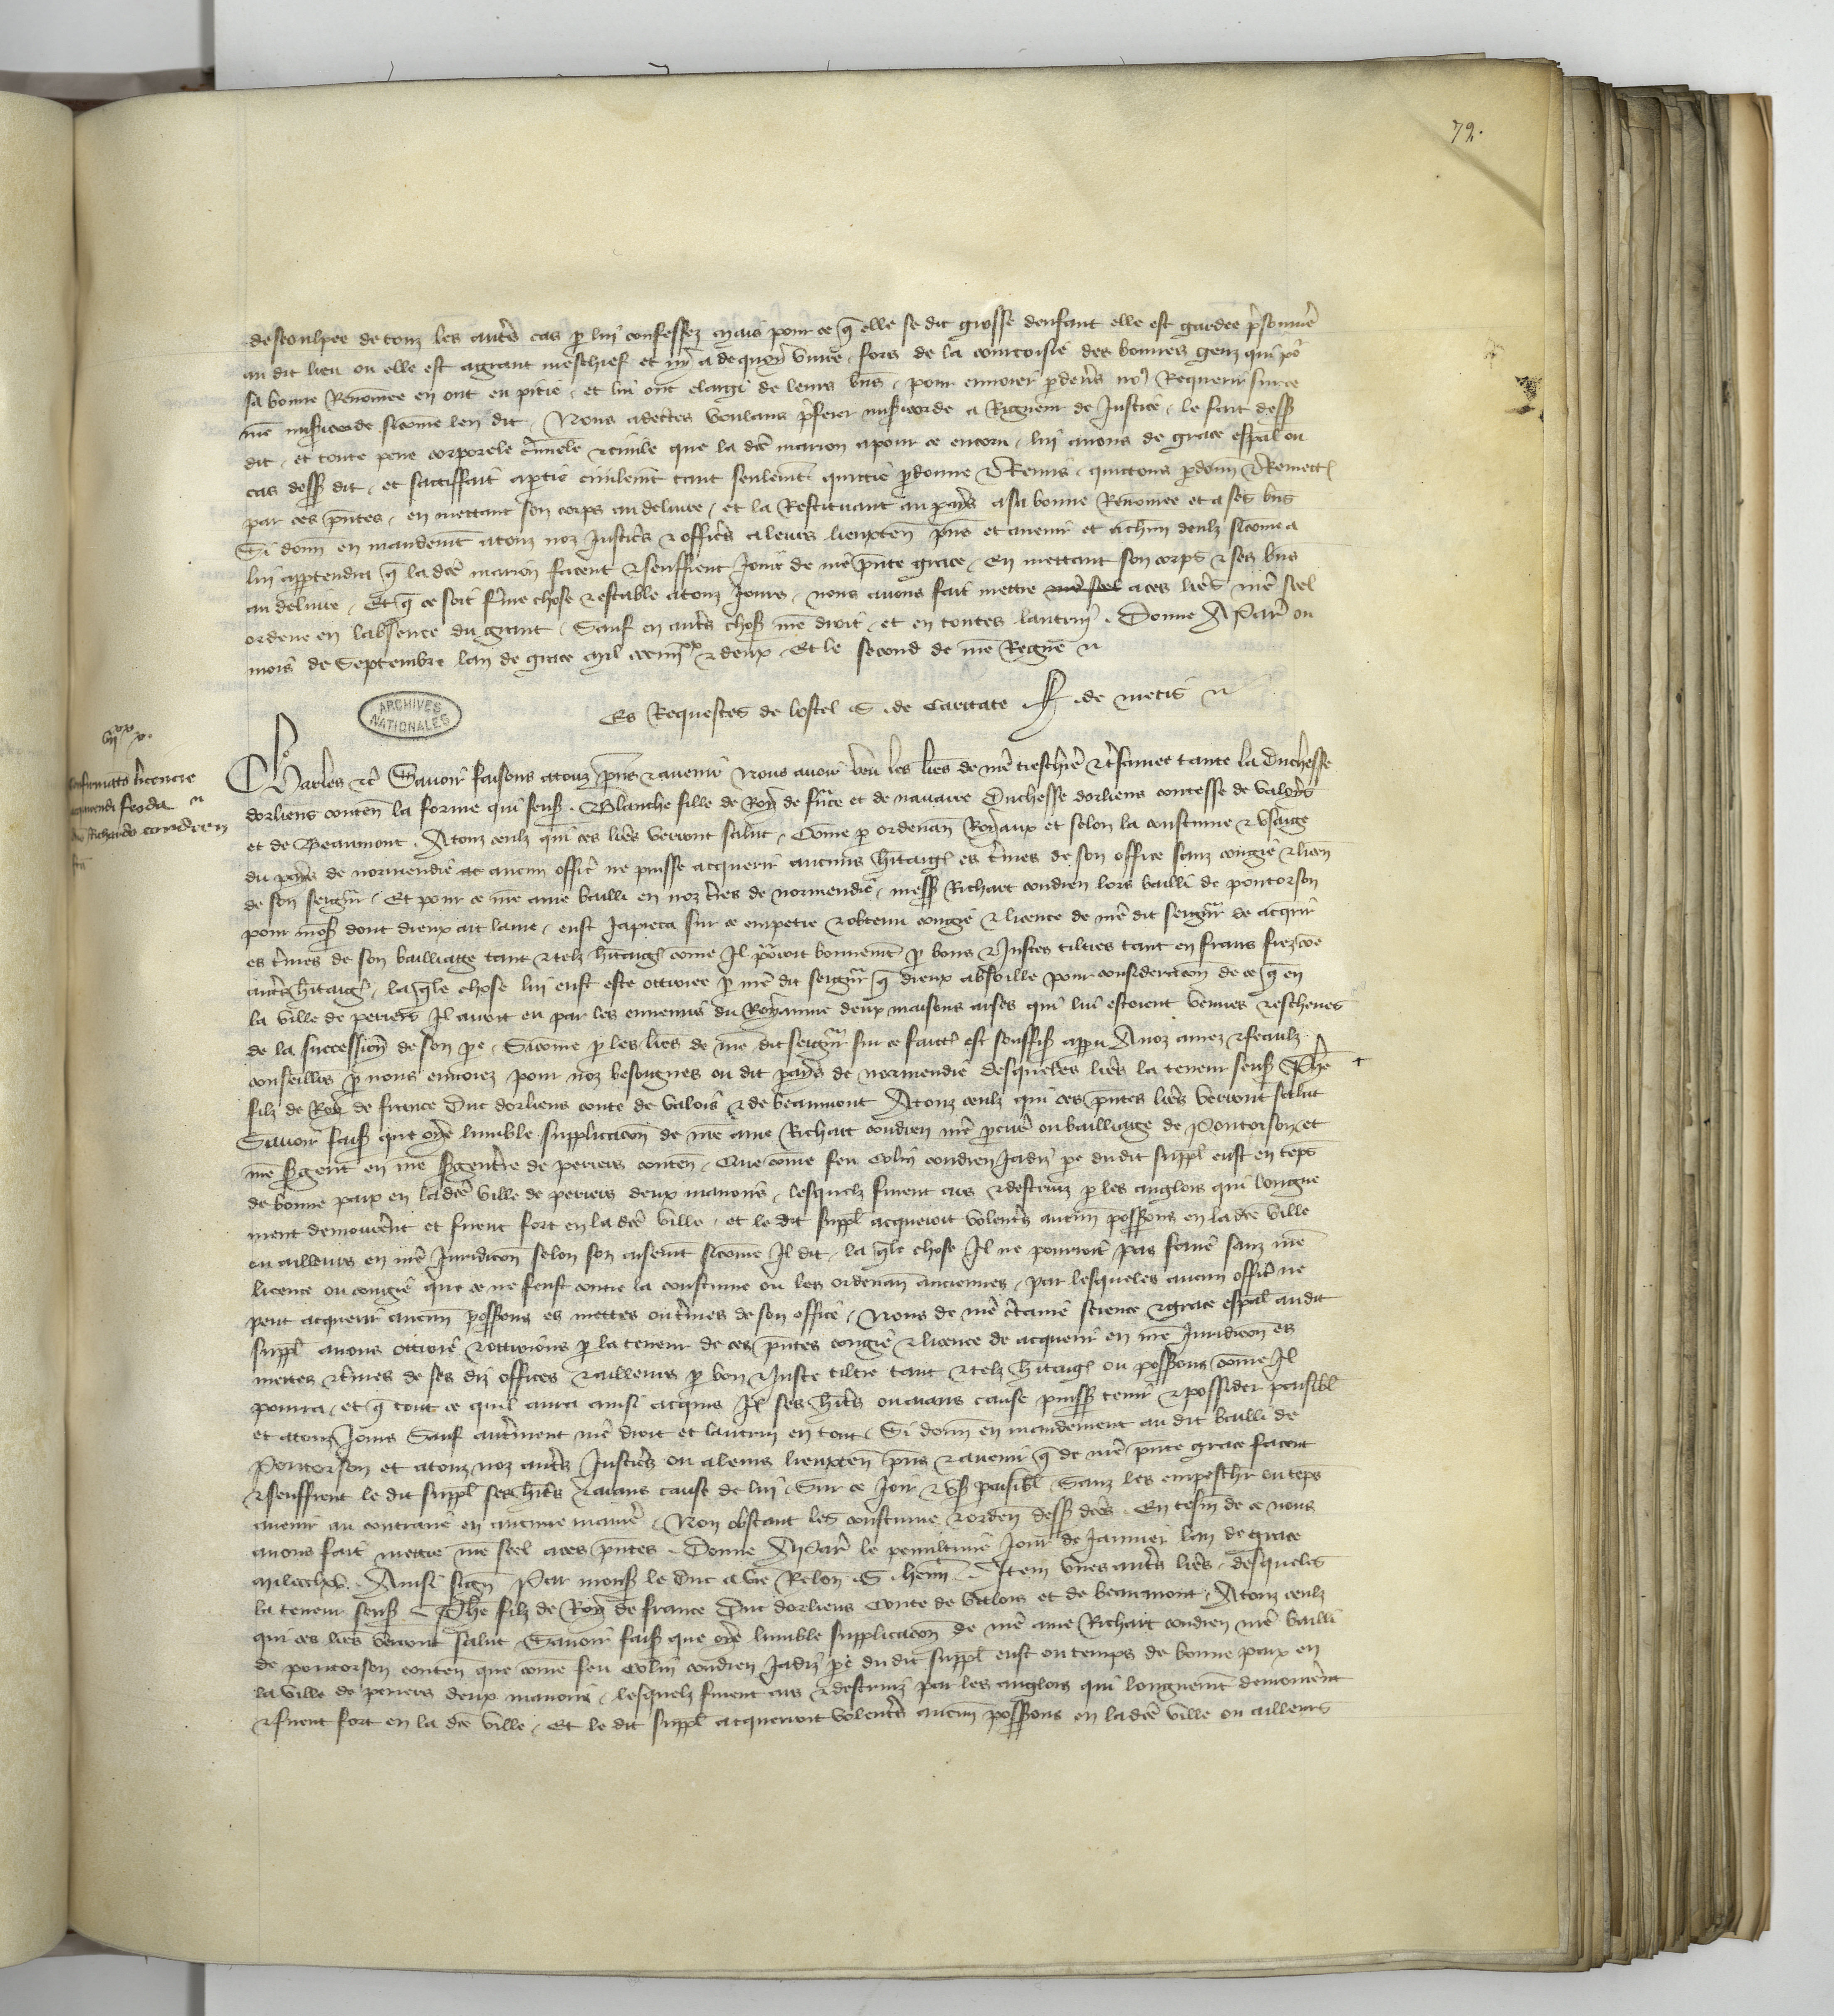 72.
descoulpee de touz les autrẽs cas ꝑ lui confessez mais pour ce q̃ elle se dit grosse denfant elle est gardee prisonnr̃e
au dit lieu ou elle est a grant meschief et ny a de quoy vivre fors de la courtoisie des bonnes genz qui po'
sa bonne Renõmee en ont eu pitie et lui ont elargi de leurs biẽs pour envoier ꝑdevẽs no9 Requerir sur ce
nr̃e miẜicorde sicõme len dit Nous adcertes voulans p̃ferer miẜicorde a Rigueur de Justice le fait dess9
dit et toute peine corporele criminele et civile que la dc̃e marion a pour ce encoru lui avons de grace esp̃al ou
cas dess9 dit et satisffait a ꝑtie civilemt̃ tant seulemt̃ quittie ꝑdonne et Remis quittons ꝑdonñ et Remettõs
par ces p̃ntes en mettant son corps au delivre et la Restituant au pays a sa bonne Renõmee et a ses biẽs
Si donñ en mandemt̃ a touz noz Justicrs̃ et officrs̃ a leurs lieuxteñ p̃ns et avenir et a chũn deulz sicõme a
lui apptendra q̃ la dc̃e marion facent et seuffrent Joir de nr̃e p̃nte grace En mettant son corps et ses biẽs
au delivre Et q̃ ce soit ferme chose et estable a touz Jours nous avons fait mettre nr̃e seel a ces lrẽs nr̃e seel
ordene en labsence du grant Sauf en autrẽs choses nr̃e droit et en toutes lautruy Donne A Paris ou
mois de Septembre lan de grace Mil CCCIIIIxx et deux Et le second de nr̃e Regne
ARCHIVES NATIONALES
Es Requestes de lostel S de Caritate de metis
Confirmatõ licencie
acquirendi feoda
Richardo condren
Charles etc̃ Savoir faisons a touz p̃ns et avenir Nous avoir veu les lrẽs de nr̃e treschiere et tresamee tante la Duchesse
dorliens conteñ la forme qui senẜ Blanche fille de Roy de frñce et de navarre Duchesse dorliens contesse de valoys
et de Beaumont Atouz ceulz qui ces lrẽs verront salut Cõme ꝑ ordenañ Royaux et selon la coustume et usaige
du pays de normendie aucun officr̃ ne puisse acquerir aucuns hr̃itaigẽs es t̃mes de son office sanz congie et liceñ
de son seignr̃ Et pour ce nr̃e ame bailli en noz trẽs de normendie messẽ Richart condren lors bailli de pontorson
pour monẜ dont dieux ait lame eust Japieca sur ce empetre et obtenu congie et licence de nr̃e dit seignr̃ de acqrir
es t̃mes de son bailliage tant et telz hr̃itaigẽs cõme Il pourroit bonnemt̃ ꝑ bons et Justes tiltres tant en frans fiez cõe
autrẽs hr̃itaigẽs laq̃le chose lui eust este ottroiee ꝑ nr̃e dit seignr̃ q̃ dieux absoille pour consideracoñ de ce q̃ en
la ville de periers Il avoit eu par les ennemis du Royaume deux maisons arses qui lui estoient venues et eschoues
de la succession de son pe Sicõme ꝑ les lrẽs de nr̃e dit seignr̃ sur ce faictẽs est souffisẽ apparu A noz amez et feaulz
conseilliers ꝑ nous envoiez pour noz besoignes ou dit pays de normendie desqueles lrẽs la teneur senẜ Phẽ
filz de Roy de france Duc dorliens conte de valois et de beaumont Atouz ceulz qui ces p̃ntes lrẽs verront salut
Savoir faisẽ que oye lumble supplicacoñ de nr̃e ame Richart condren nr̃e ꝑcureur ou bailliage de Pontorson et
nr̃e sẽgent en nr̃e sẽgenterie de periers conteñ Que cõme feu Colin condren Jadiz pe dudit suppl̃ eust en tẽps
de bonne paix en ladc̃e ville de periers deux manoirs lesquelz furent ars et destruiz ꝑ les anglois qui longue
ment demourẽnt et furent fort en ladc̃e ville et le dit suppl̃ acquerroit volentrẽs aucuñ possẽons en la dc̃e ville
ou ailleurs en nr̃e Juridicoñ selon son aisemt̃ sicõme Il dit laq̃le chose Il ne pourroit pas faire sanz nr̃e
licence ou congie que ce ne feust contre la coustume ou les ordenañ anciennes par lesqueles aucun officr̃ ne
peut acquerir aucuñ possẽons es mettes ou t̃mes de son office Nous de nr̃e c̃taine science et grace esp̃al audit
suppl̃ avons ottroie et ottroions ꝑ la teneur de ces p̃ntes congie et licence de acquerir en nr̃e Juridicoñ es
mettes et t̃mes de ses diz offices et ailleurs ꝑ bon et Juste tiltre tant et telz hr̃itaigẽs ou possẽons cõme Il
pourra et q̃ tout ce quil aura ainsi acquis Il ses hr̃s ou aians cause puissẽ tenir et posseder paisibl̃
et a touz Jours Sauf autrẽment nr̃e droit et lautruy en tout Si donñ en mandement au dit bailli de
Pontorson et a touz noz autrẽs Justicrs̃ ou a leurs lieuxteñ p̃ns et avenir q̃ de nr̃e p̃nte grace facent
et seuffrent le dit suppl̃ ses hr̃s et aians cause de lui Sur ce Joir et usẽ paisibl̃ Sanz les empeschr̃ ou tẽps
avenir au contraire en aucune manr̃e Non obstant les coustume et ordeñ dessẽ dc̃es En tesm̃ de ce nous
avons fait mettre nr̃e seel a ces p̃ntes Donne A Paris le penultime Jour de Janvier lan de grace
Ainsi signẽ Par monsẽ le Duc a vr̃e Reloñ S heriñ Item unes autrẽs lrẽs desqueles
la teneur senẜ Phẽ filz de Roy de france Duc dorliens Conte de valois et de beaumont Atouz ceulz
qui ces lrẽs verront salut Savoir faisẽ que oye lumble supplicacoñ de nr̃e ame Richart condren nr̃e bailli
de pontorson conteñ que cõme feu Colin condren Jadiz pe dudit suppl̃ eust ou temps de bonne paix en
la ville de periers deux manoirs lesquelz furent ars et destruiz par les anglois qui longuemt̃ demourẽnt
et furent fort en la dc̃e ville Et le dit suppl̃ acquerroit volentrẽs aucuñ possẽons en ladc̃e ville ou ailleurs